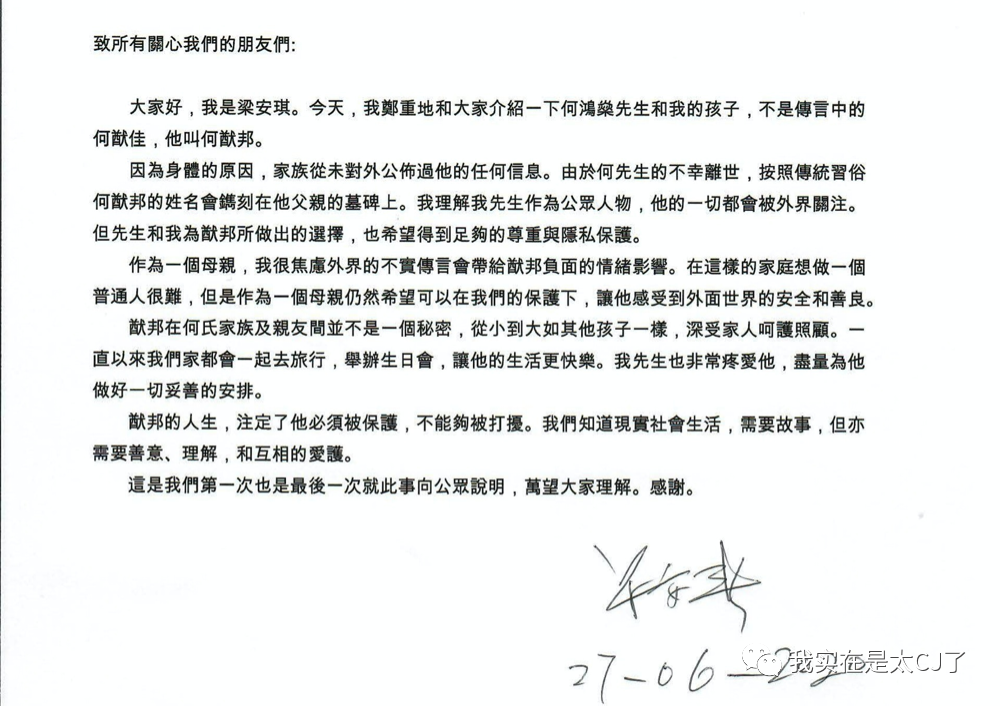 致所有關心我們的朋友們:
大家好，我是梁安琪。今天，我鄭重地和大家介紹一下何鴻燊先生和我的孩子，不是傳言中的
何猷佳，他叫何猷邦。
因為身體的原因，家族從未對外公佈過他的任何信息。由於何先生的不幸離世，按照傳統習俗
何猷邦的姓名會鐫刻在他父親的墓碑上。我理解我先生作為公眾人物，他的一切都會被外界關注。
但先生和我為猷邦所做出的選擇，也希望得到足夠的尊重與隱私保護。
作為一個母親，我很焦慮外界的不實傳言會帶給猷邦負面的情緒影響。在這樣的家庭想做一個
普通人很難，但是作為一個母親仍然希望可以在我們的保護下，讓他感受到外面世界的安全和善良。
猷邦在何氏家族及親友間並不是一個秘密，從小到大如其他孩子一樣，深受家人呵護照顧。一
直以來我們家都會一起去旅行，舉辦生日會，讓他的生活更快樂。我先生也非常疼愛他，盡量為他
做好一切妥善的安排。
猷邦的人生，注定了他必須被保護，不能夠被打擾。我們知道現實社會生活，需要故事，但亦
需要善意、理解，和互相的愛護。
這是我們第一次也是最後一次就此事向公眾說明，萬望大家理解。感謝。
梁安琪
27-06-2020
我实在是太CJ了